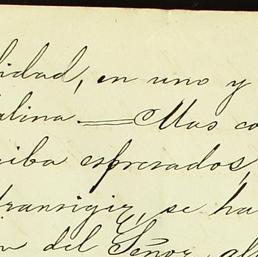 lidad, en uno y
alina — Mas co
riba espresados,
transigir, se ha
n del Señor, al